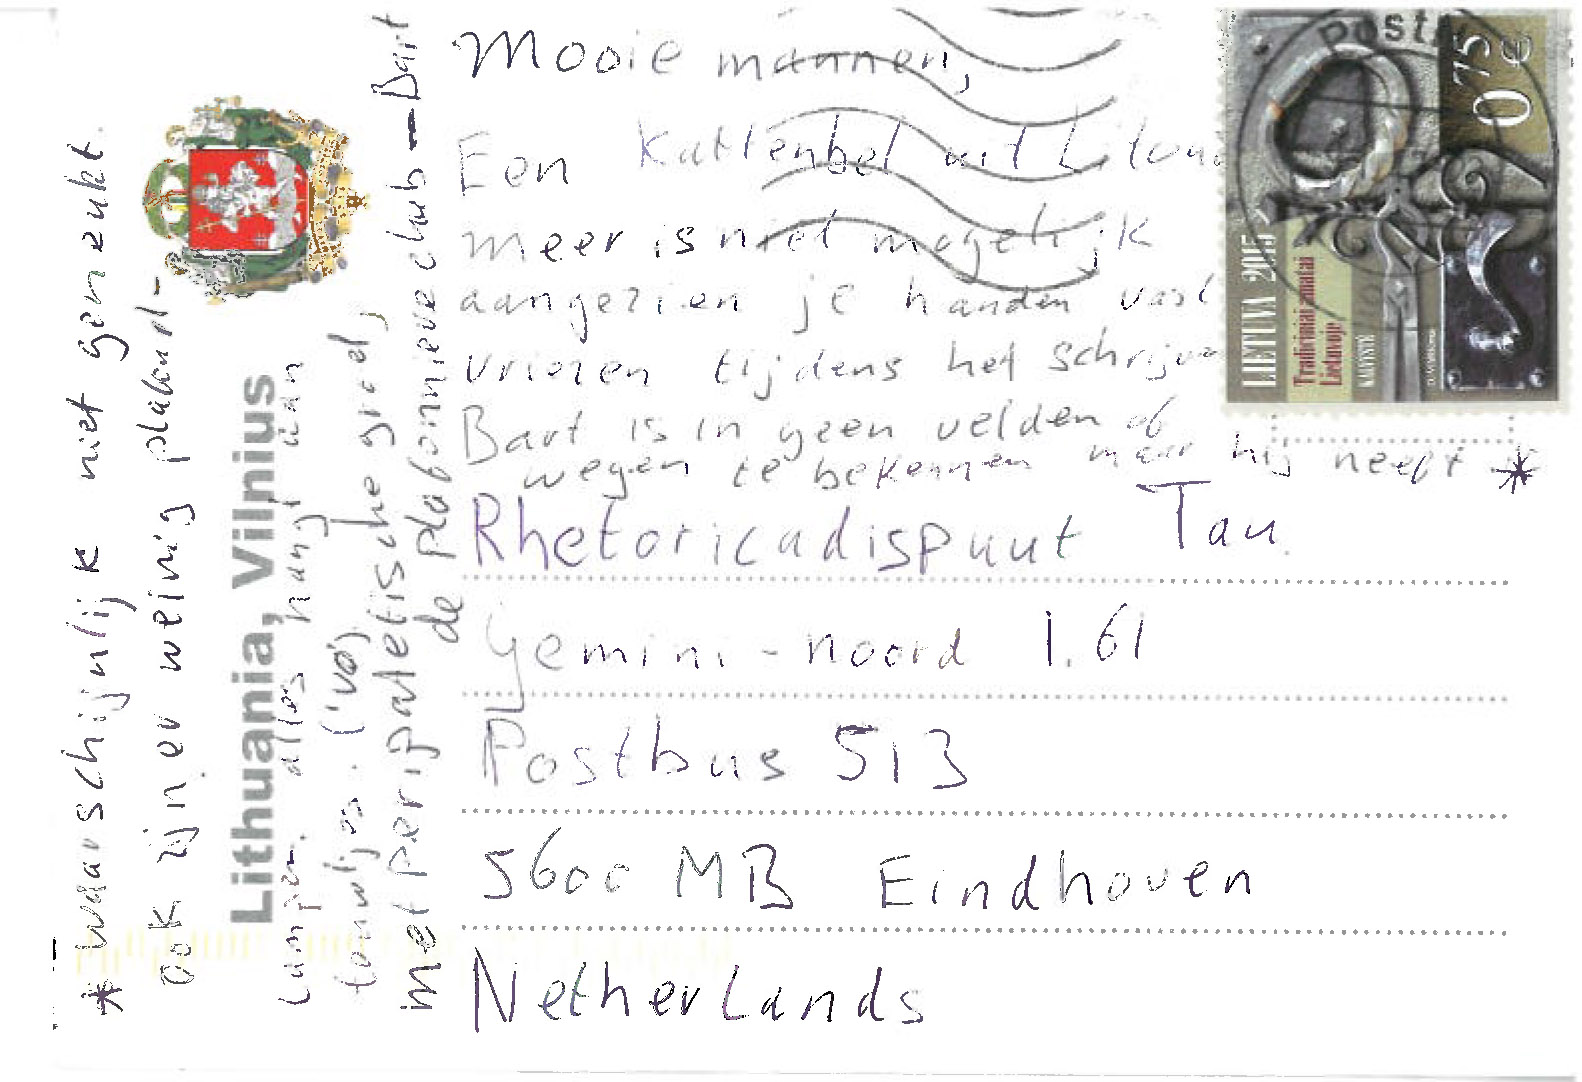 Mooie mannen,
Een Kattenbel uit Litouw
meer is niet mogelijk
aangezien je handen vast
vriezen tijdens het schrijven
Bart is in geen velden of
wegen te bekennen maar hij heeft *
Rhetoricadispuut Tau
Gemini-noord 1.61
Postbus 513
5600 MB Eindhoven
Netherlands
* waarschijnlijk niet gezeukt.
ook zijn er weinig plafond-
lampen. alles hangt aan
touwtjes. ('vo)
met peripatetische groet,
de plafonnieveclub — Bart
Lithuania, Vilnius
Post
0,75 €
LIETUVA 2015
Tradiciniai amatai
Lietuvoje
KALVYSTĖ